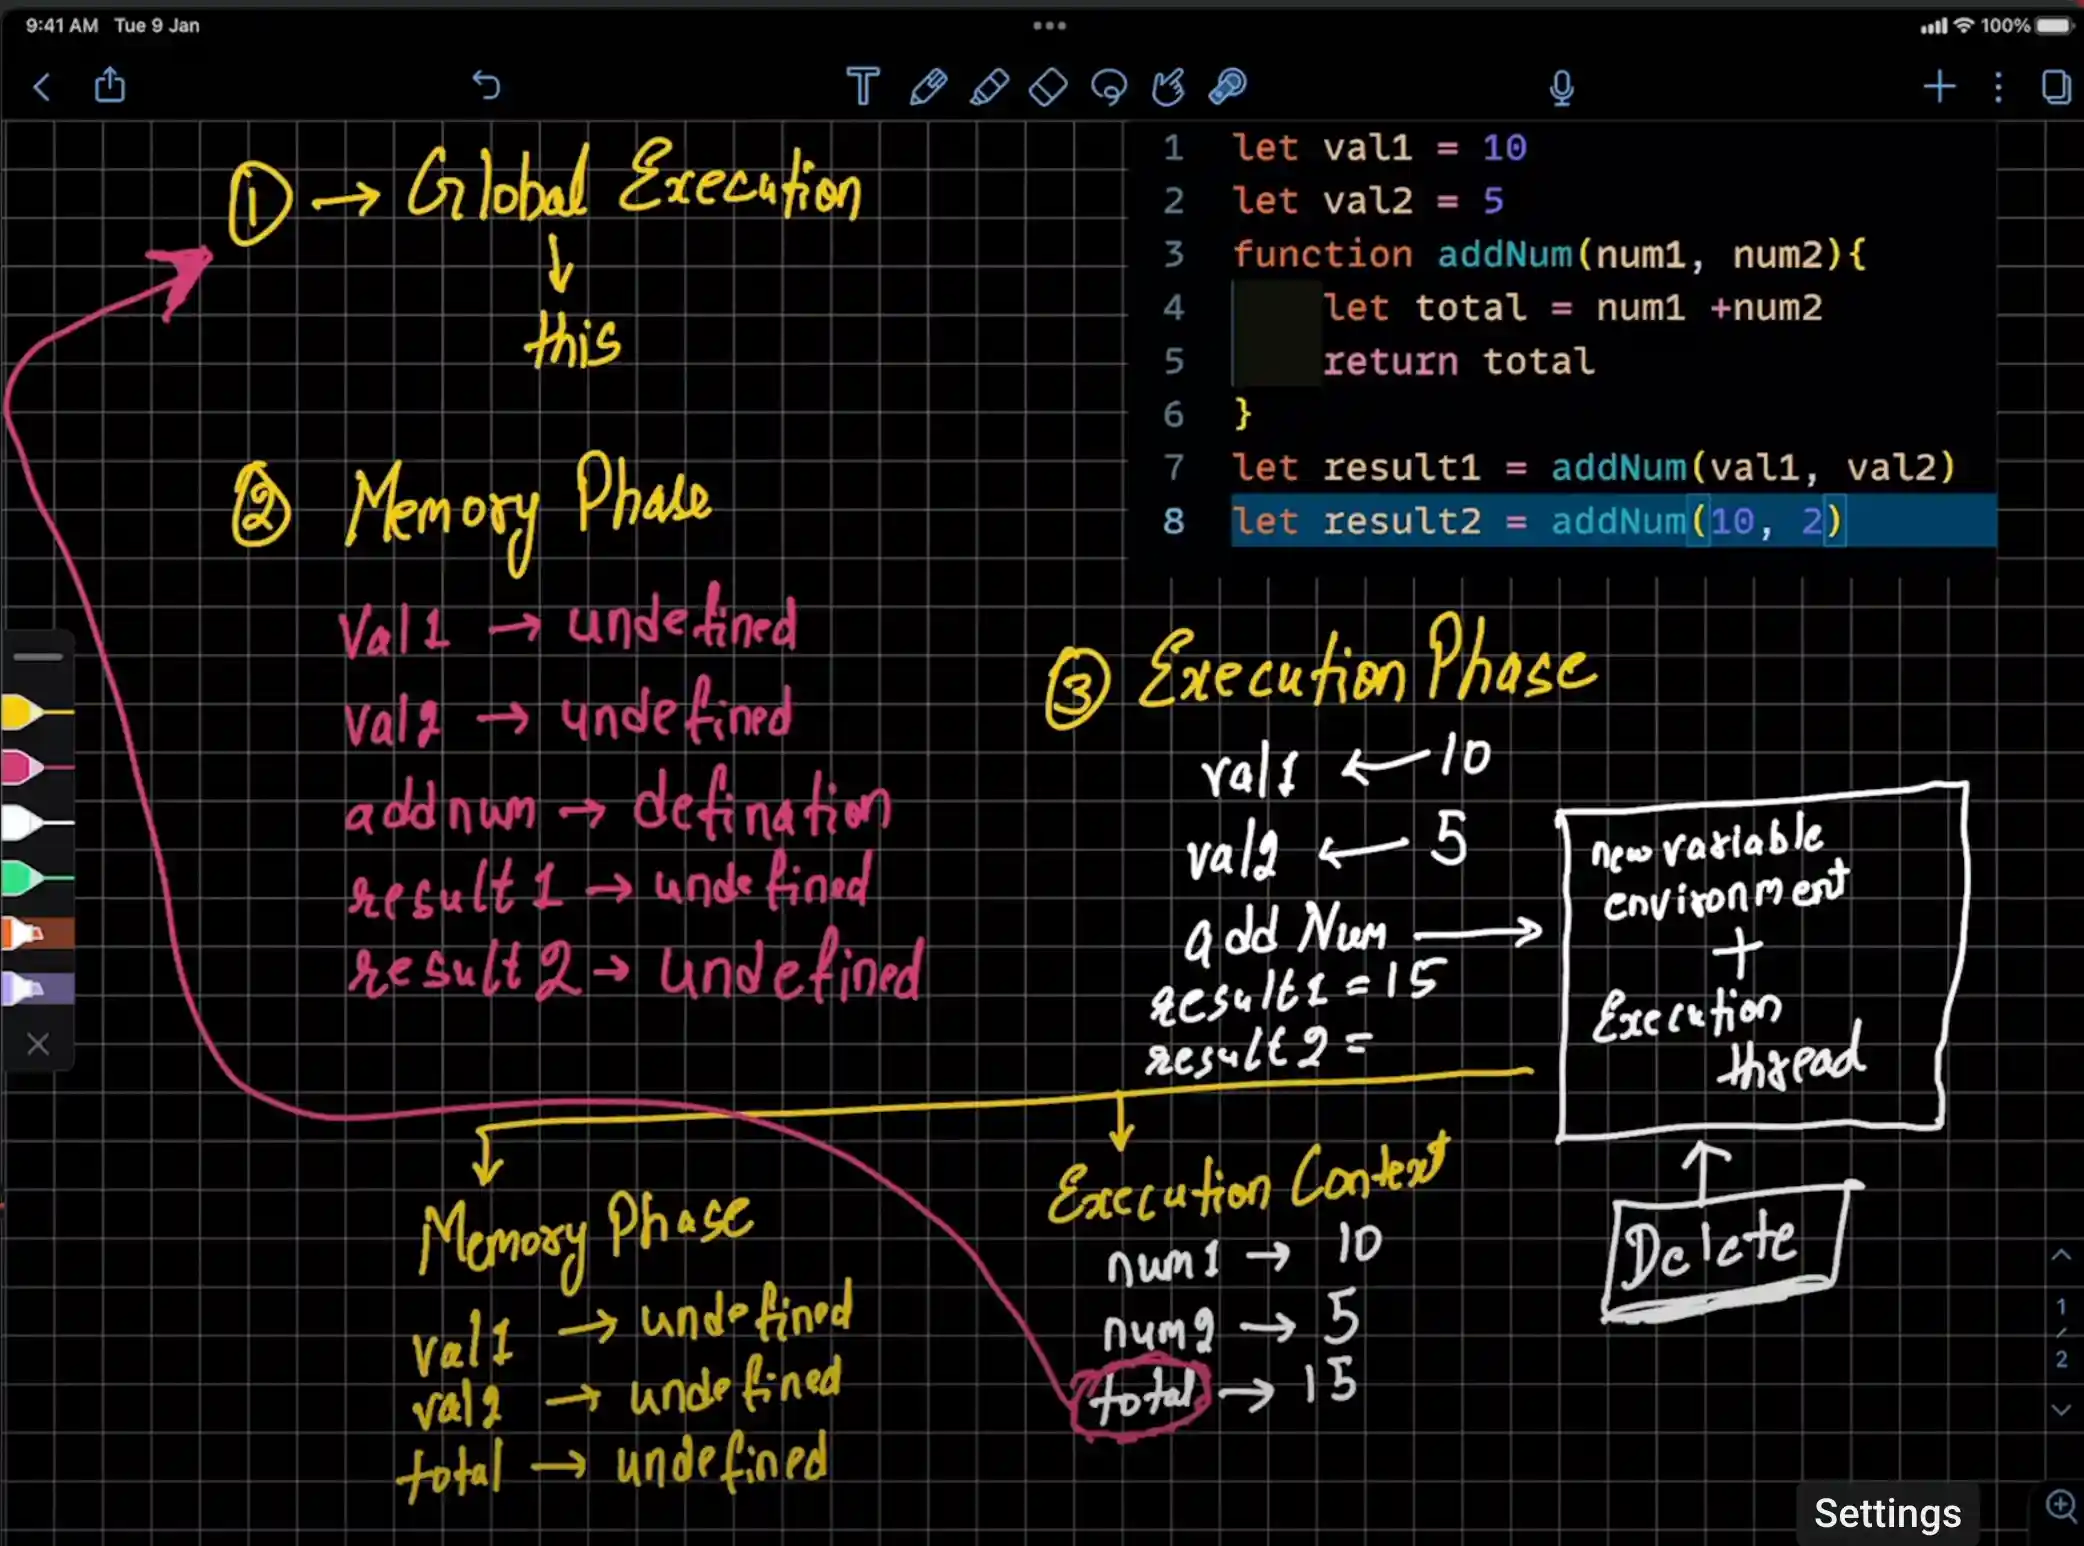 9:41 AM Tue 9 Jan
100%
① → Global Execution
↓
this
② Memory Phase
Val1 → undefined
val2 → undefined
addnum → defination
result1 → undefined
result2 → undefined
1 let val1 = 10
2 let val2 = 5
3 function addNum(num1, num2){
4 let total = num1 +num2
5 return total
6 }
7 let result1 = addNum(val1, val2)
8 let result2 = addNum(10, 2)
③ Execution Phase
val1 ← 10
val2 ← 5
add Num →
result1 = 15
result2 =
new variable
environment
+
Execution
thread
↑
Delete
Memory Phase
val1 → undefined
val2 → undefined
total → undefined
Execution Context
num1 → 10
num2 → 5
total → 15
1
/
2
Settings